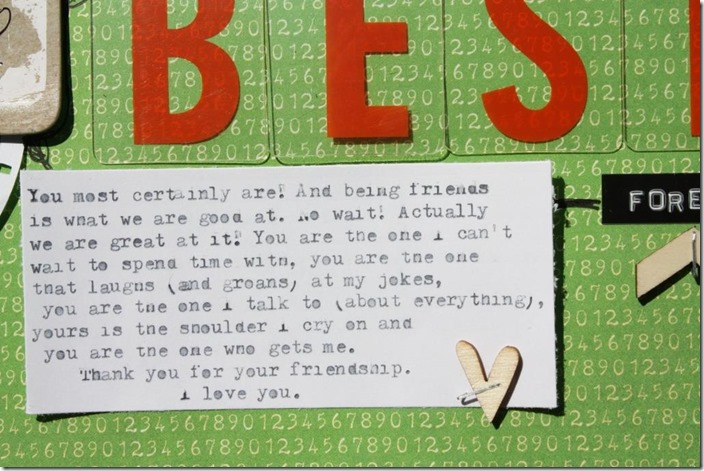 BES
You most certainly are! And being friends
is what we are good at. No wait! Actually
we are great at it! You are the one I can't
wait to spend time with, you are the one
that laughs (and groans) at my jokes,
you are the one I talk to (about everything),
yours is the shoulder I cry on and
you are the one who gets me.
Thank you for your friendship.
I love you.
FORE